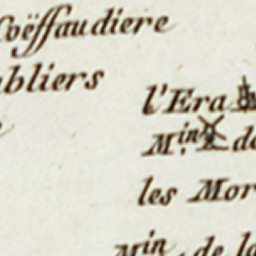 Coëffaudiere
abliers
l'Era
Min de
les Mor
Min. de la